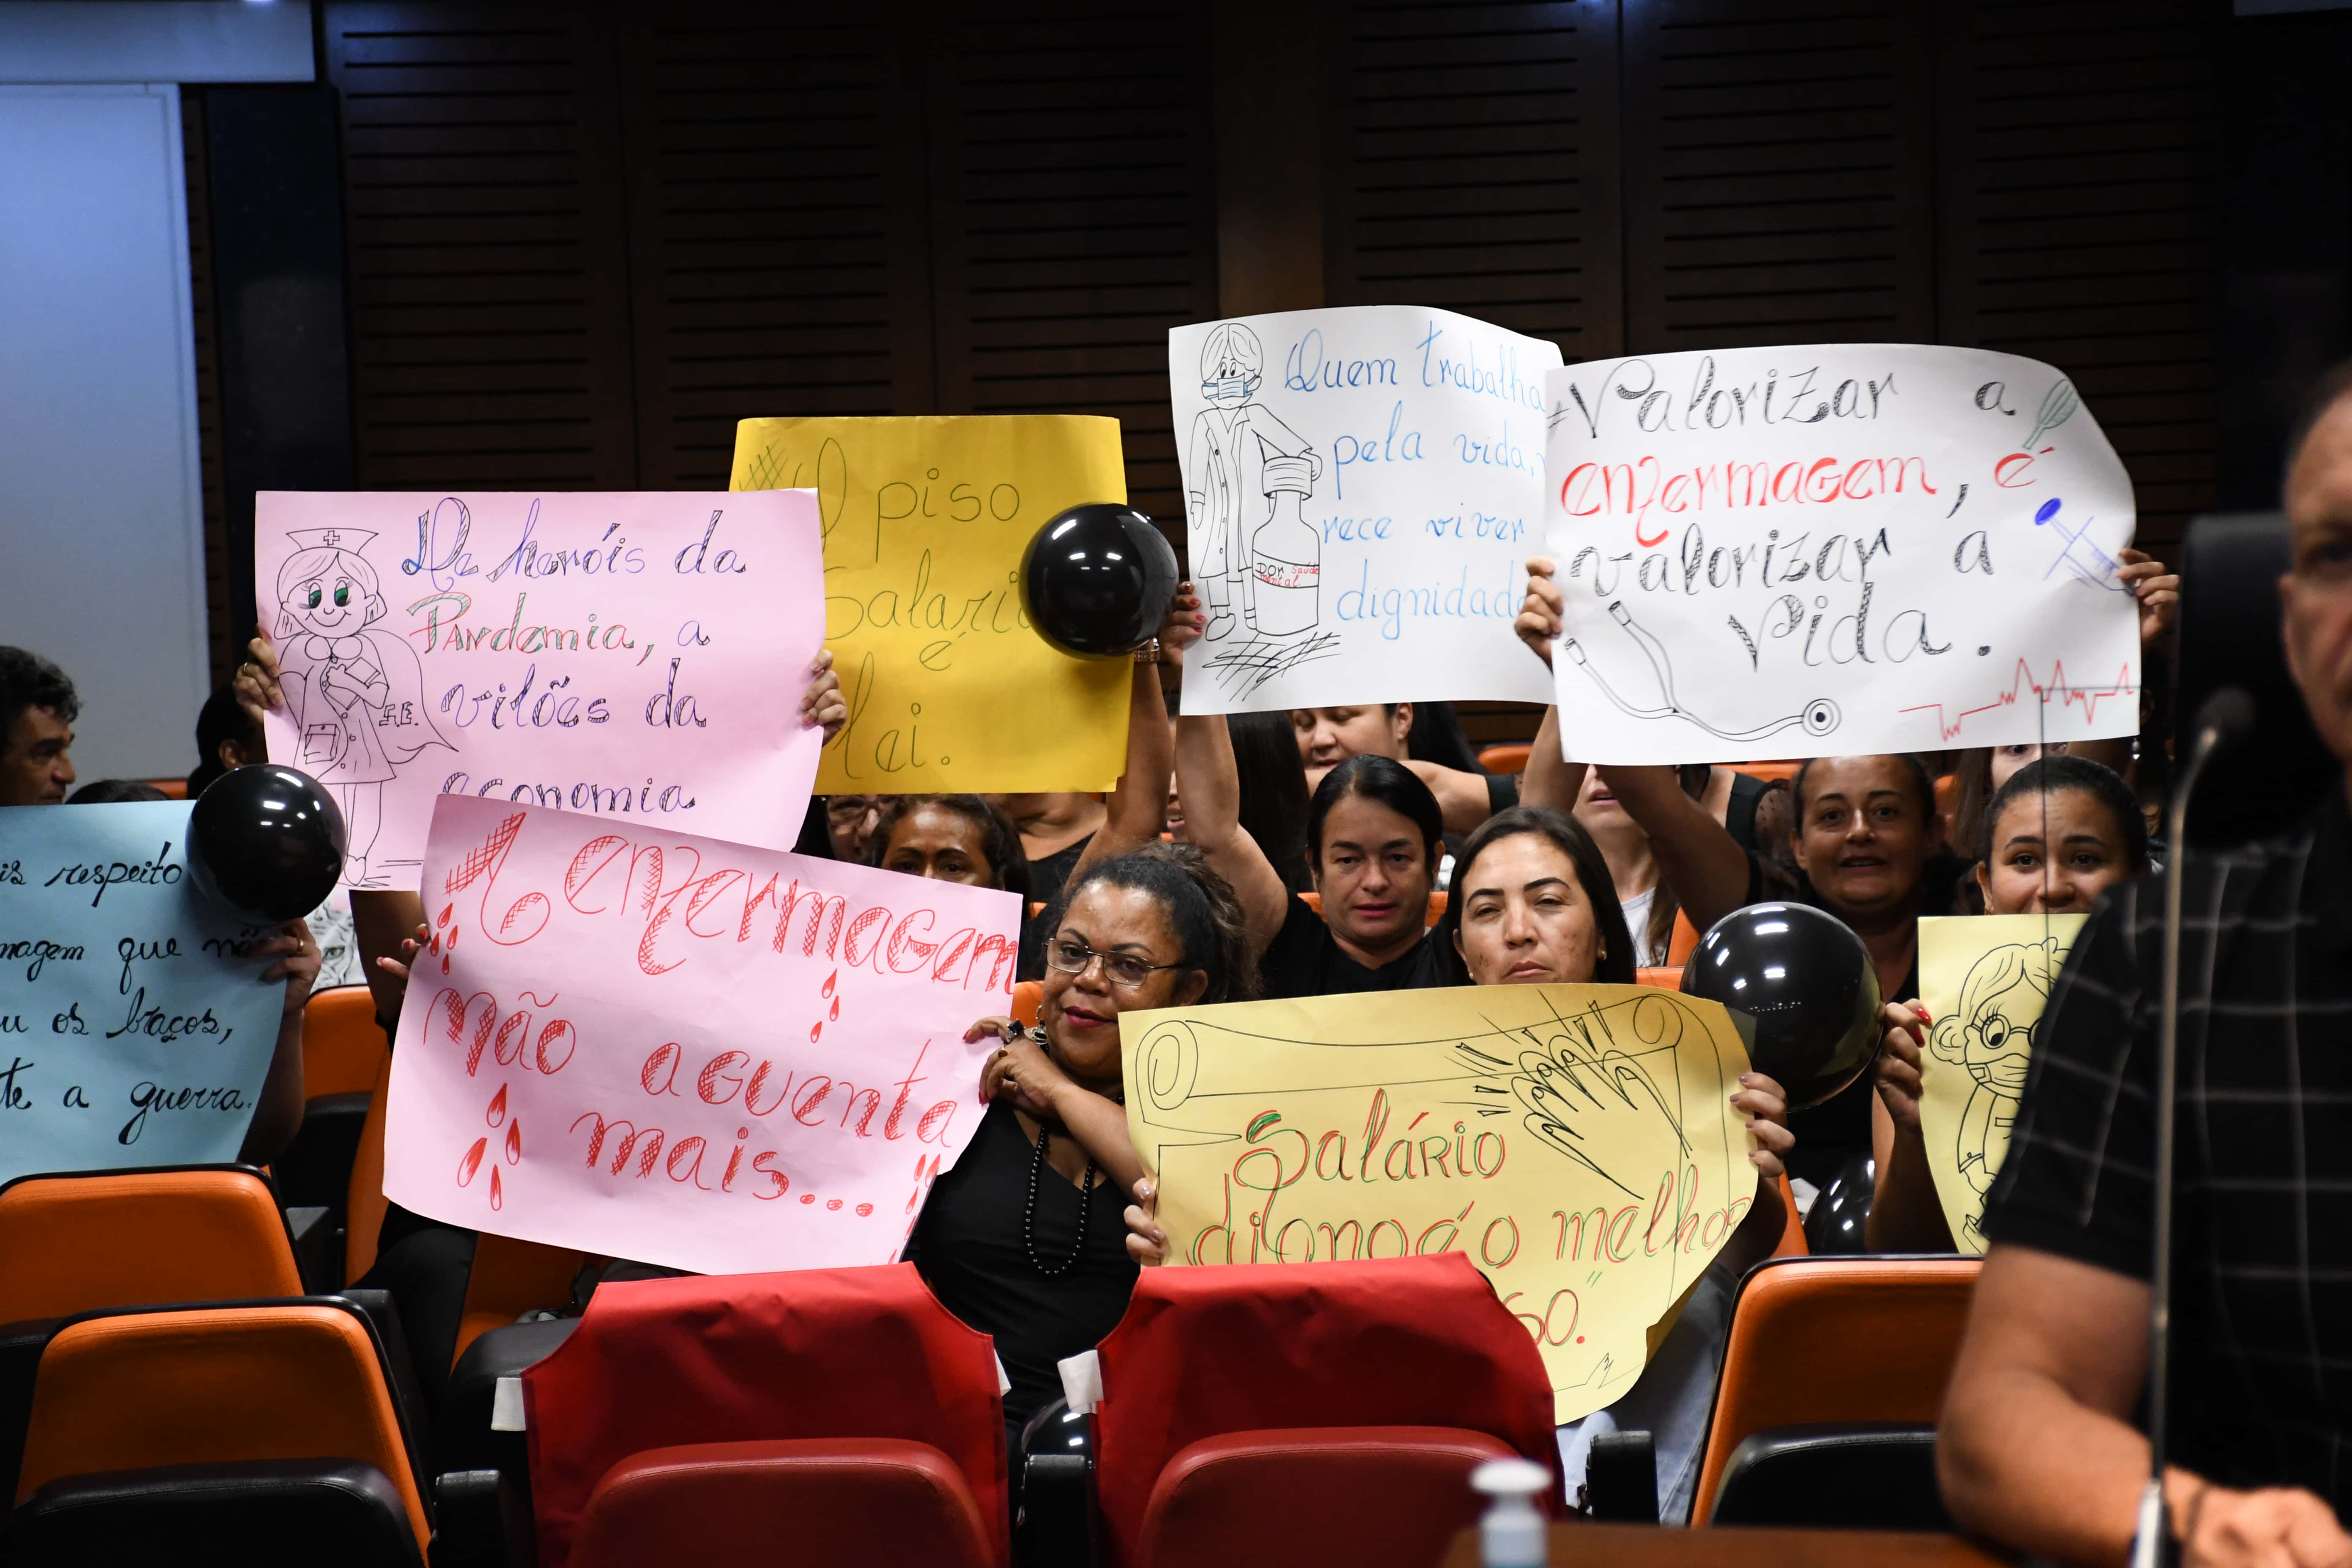 De heróis da
Pandemia, a
vilões da
economia
S.E.
#O piso
Salarial
é
lei.
Quem trabalha
pela vida,
rece viver
dignidade
DOR saúde
mental
#Valorizar a
enfermagem, é
valorizar a
vida.
respeito
que não
os braços,
a guerra.
A enfermagem
não aguenta
mais...
Salário
digno é o melhor
so."